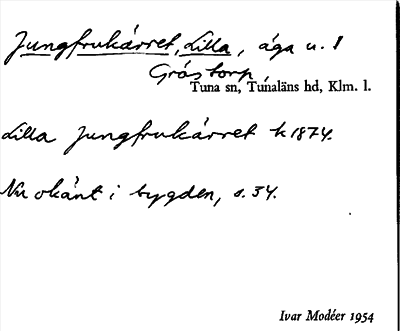 Jungfrukärret, Lilla, äga u. 1
Gråstorp
Tuna sn, Tunaläns hd, Klm. l.
Lilla Jungfrukärret k 1874.
Nu okänt i bygden, s. 34.
Ivar Modéer 1954